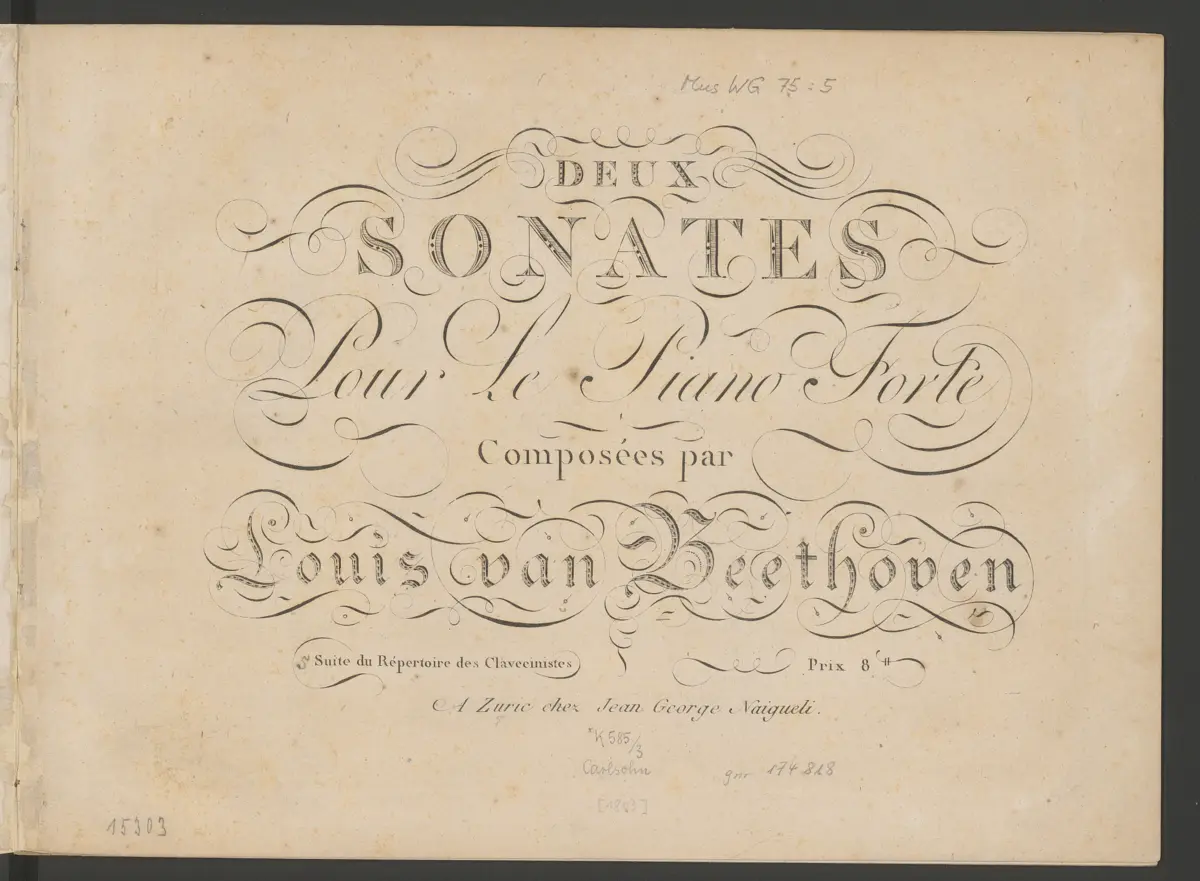 Mus WG 75:5
DEUX
SONATES
Pour Le Piano Forte
Composées par
Louis van Beethoven
5 Suite du Répertoire des Clavecinistes Prix 8 ₶
A Zuric chez Jean George Naigueli.
K 585/3
Carlsohn gnr 174 818
[1803]
15303